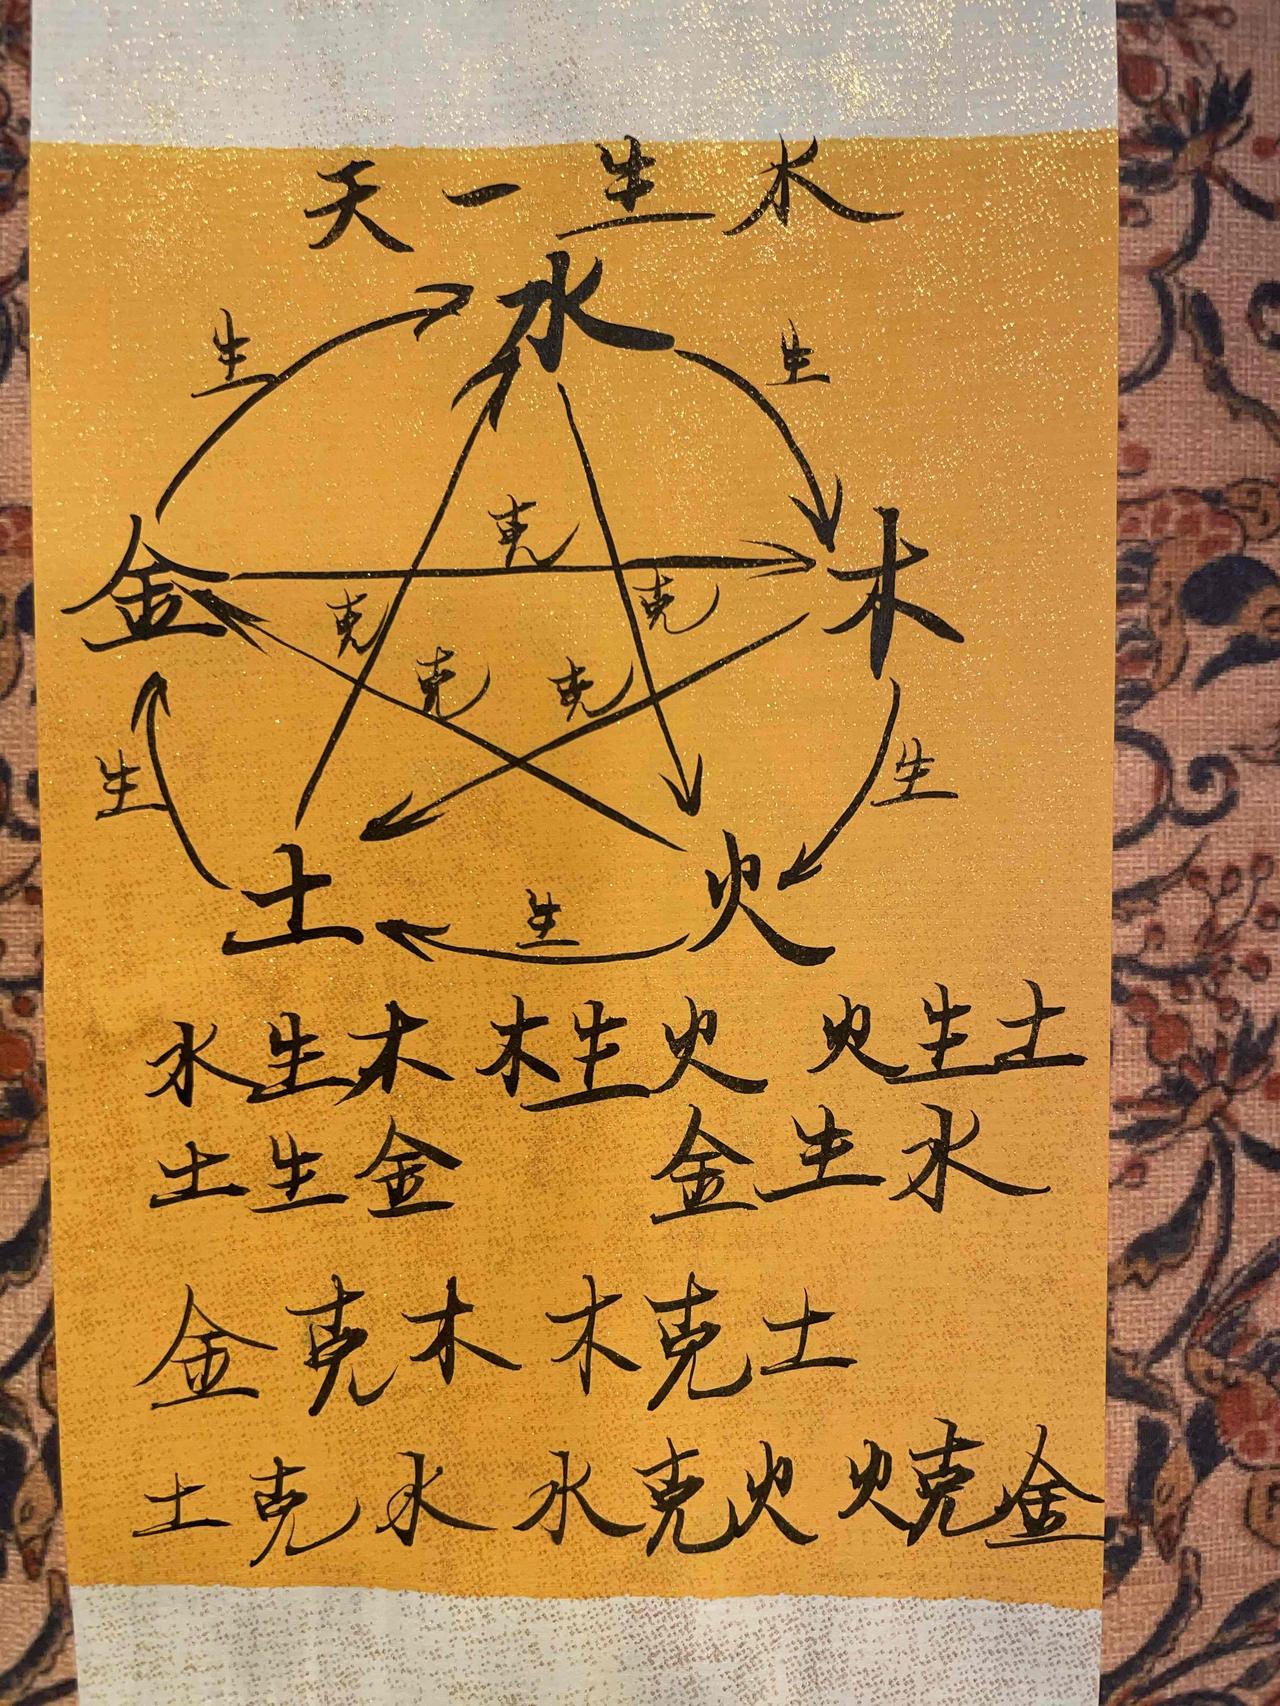 天一生水
水
生 生
金 木
克
克 克
克 克
生 生
土 火
生
水生木 木生火 火生土
土生金 金生水
金克木 木克土
土克水 水克火 火克金